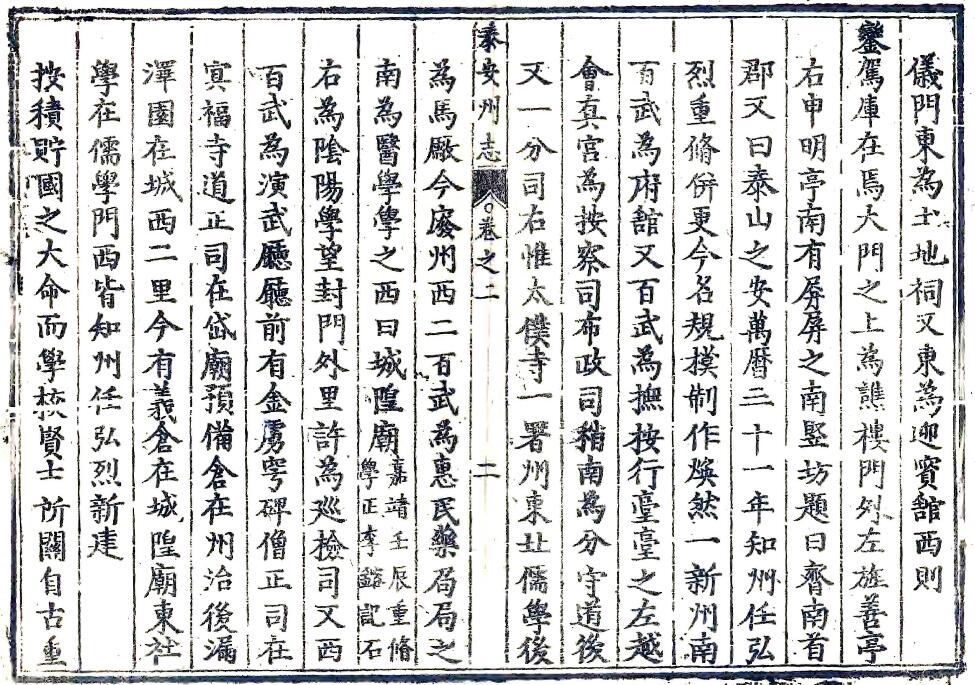 儀門東為土地祠又東為迎賓舘西則
鑾駕庫在焉大門之上為譙樓門外左旌善亭
右申明亭南有屏屏之南竪坊題曰齊南首
郡又曰泰山之安萬曆三十一年知州任弘
烈重脩併更今名規摸制作煥然一新州南
百武為府舘又百武為撫按行臺臺之左越
會真宮為按察司布政司稍南為分守道後
又一分司右惟太僕寺一署州東北儒學後
泰安州志 卷之二 二
為馬廠今廢州西二百武為惠民藥局局之
南為醫學學之西曰城隍廟嘉靖壬辰重脩學正李鎔記石
右為陰陽學望封門外里許為廵檢司又西
百武為演武廳廳前有金虜穹碑僧正司在
寘福寺道正司在岱廟預備倉在州治後漏
澤園在城西二里今有義倉在城隍廟東社
學在儒學門西皆知州任弘烈新建
按積貯國之大命而學校賢士所關自古重